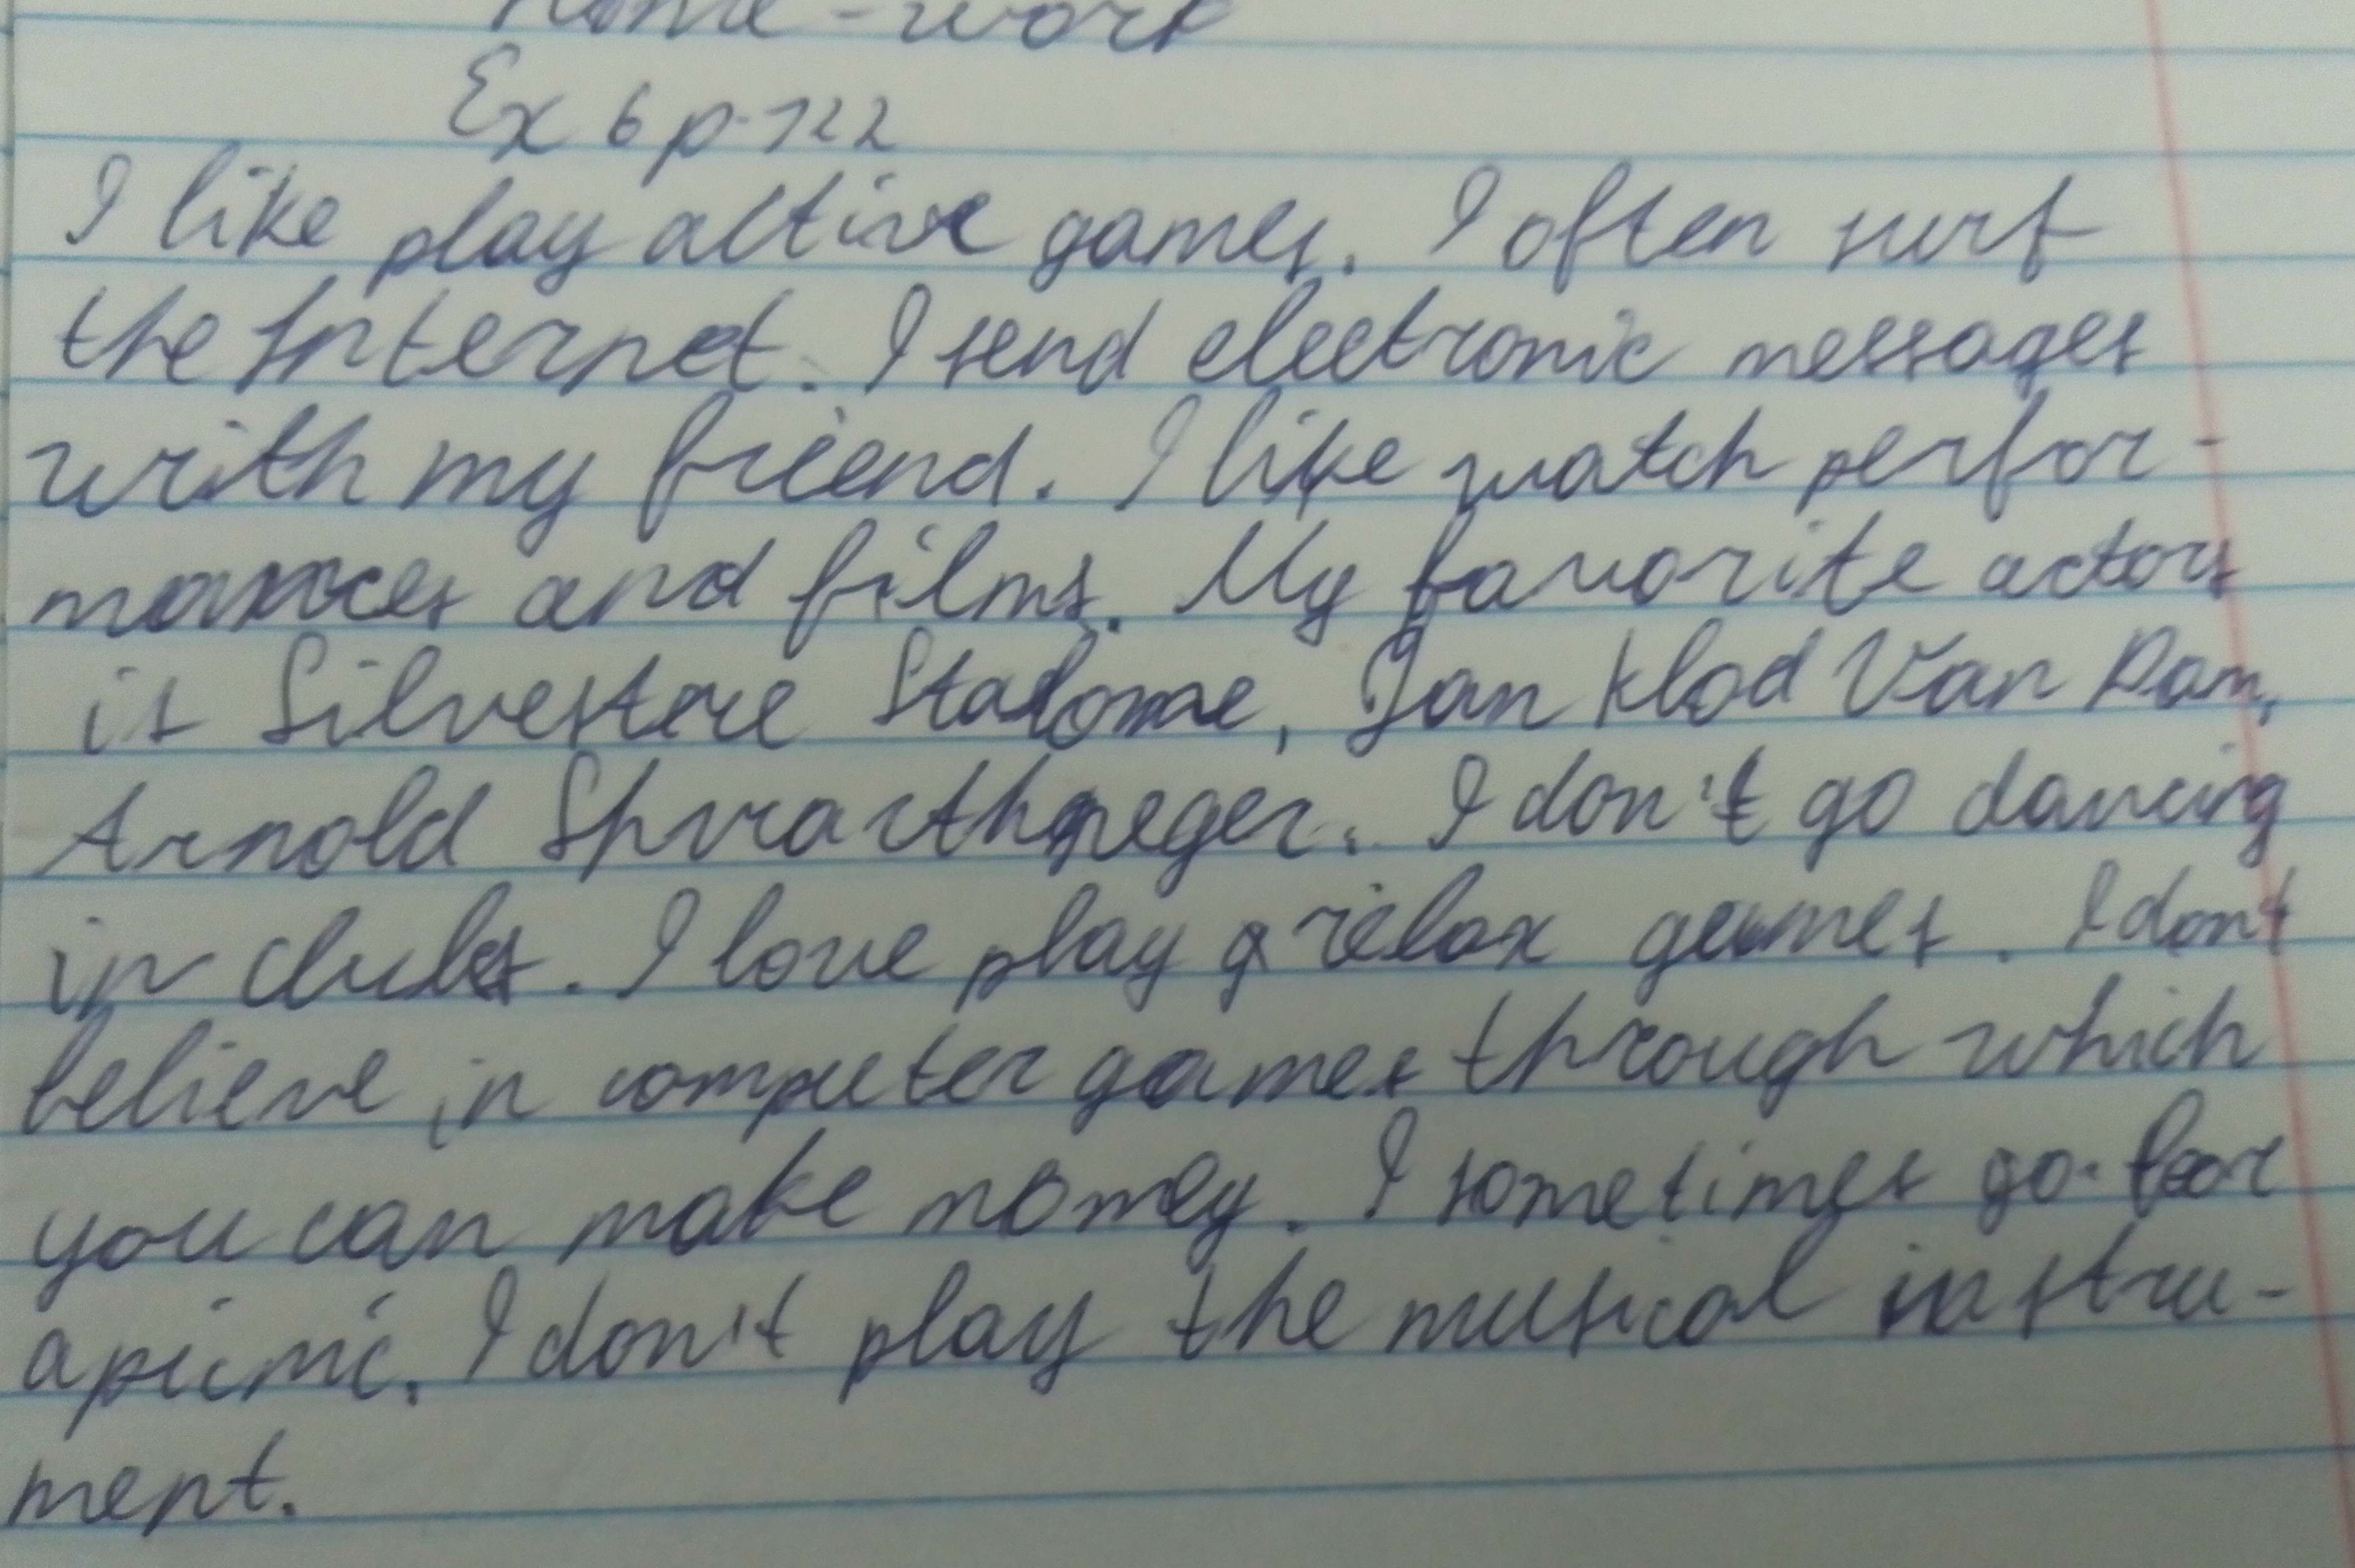 Home-work
Ex 6 p.122
I like play active games. I often surf
the Internet. I send electronic messages
with my friend. I like watch perfor-
mances and films. My favorite actors
is Silvestere Stalone, Jan Klod Van Dam,
Arnold Shvarthneger. I don't go dancing
in clubs. I love play relax games. I don't
believe in computer games through which
you can make money. I sometimes go for
a picnic. I don't play the musical instru-
ment.